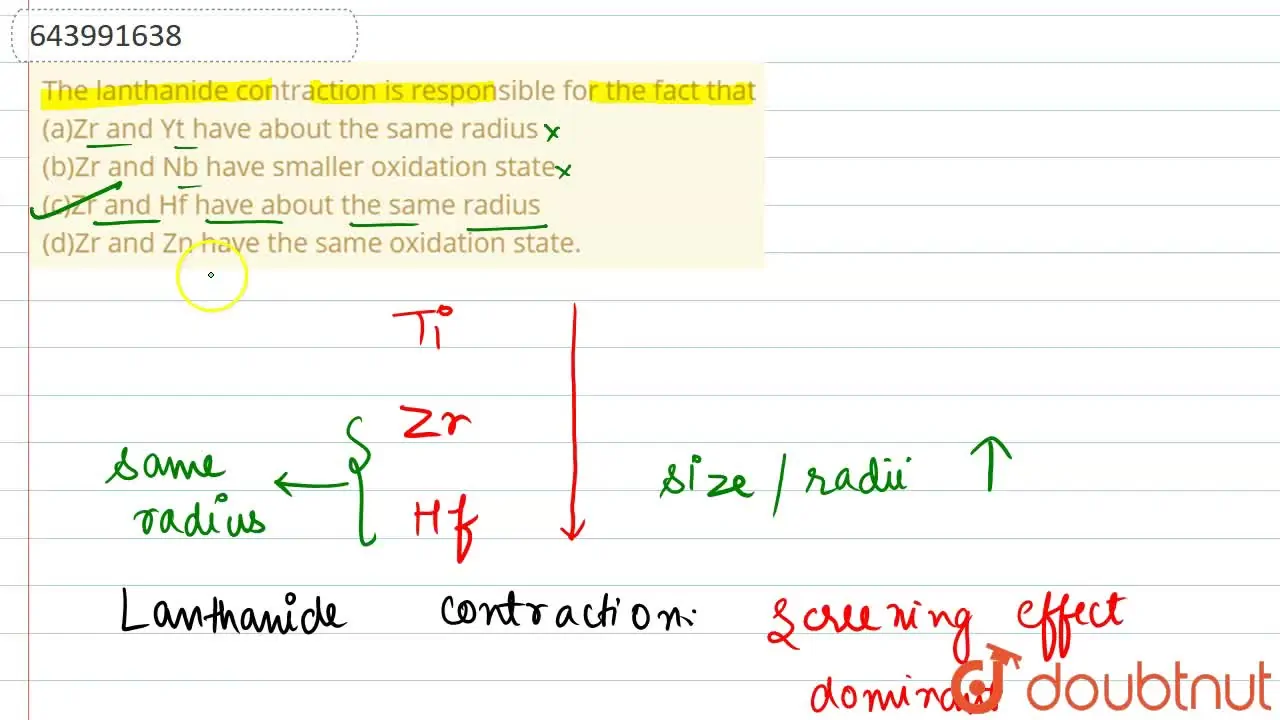 643991638
The lanthanide contraction is responsible for the fact that
(a)Zr and Yt have about the same radius x
(b)Zr and Nb have smaller oxidation state x
(c)Zr and Hf have about the same radius
(d)Zr and Zn have the same oxidation state.
Ti
Zr
same
radius
size / radii
Hf
Lanthanide contraction.
Screening effect
dominant
doubtnut